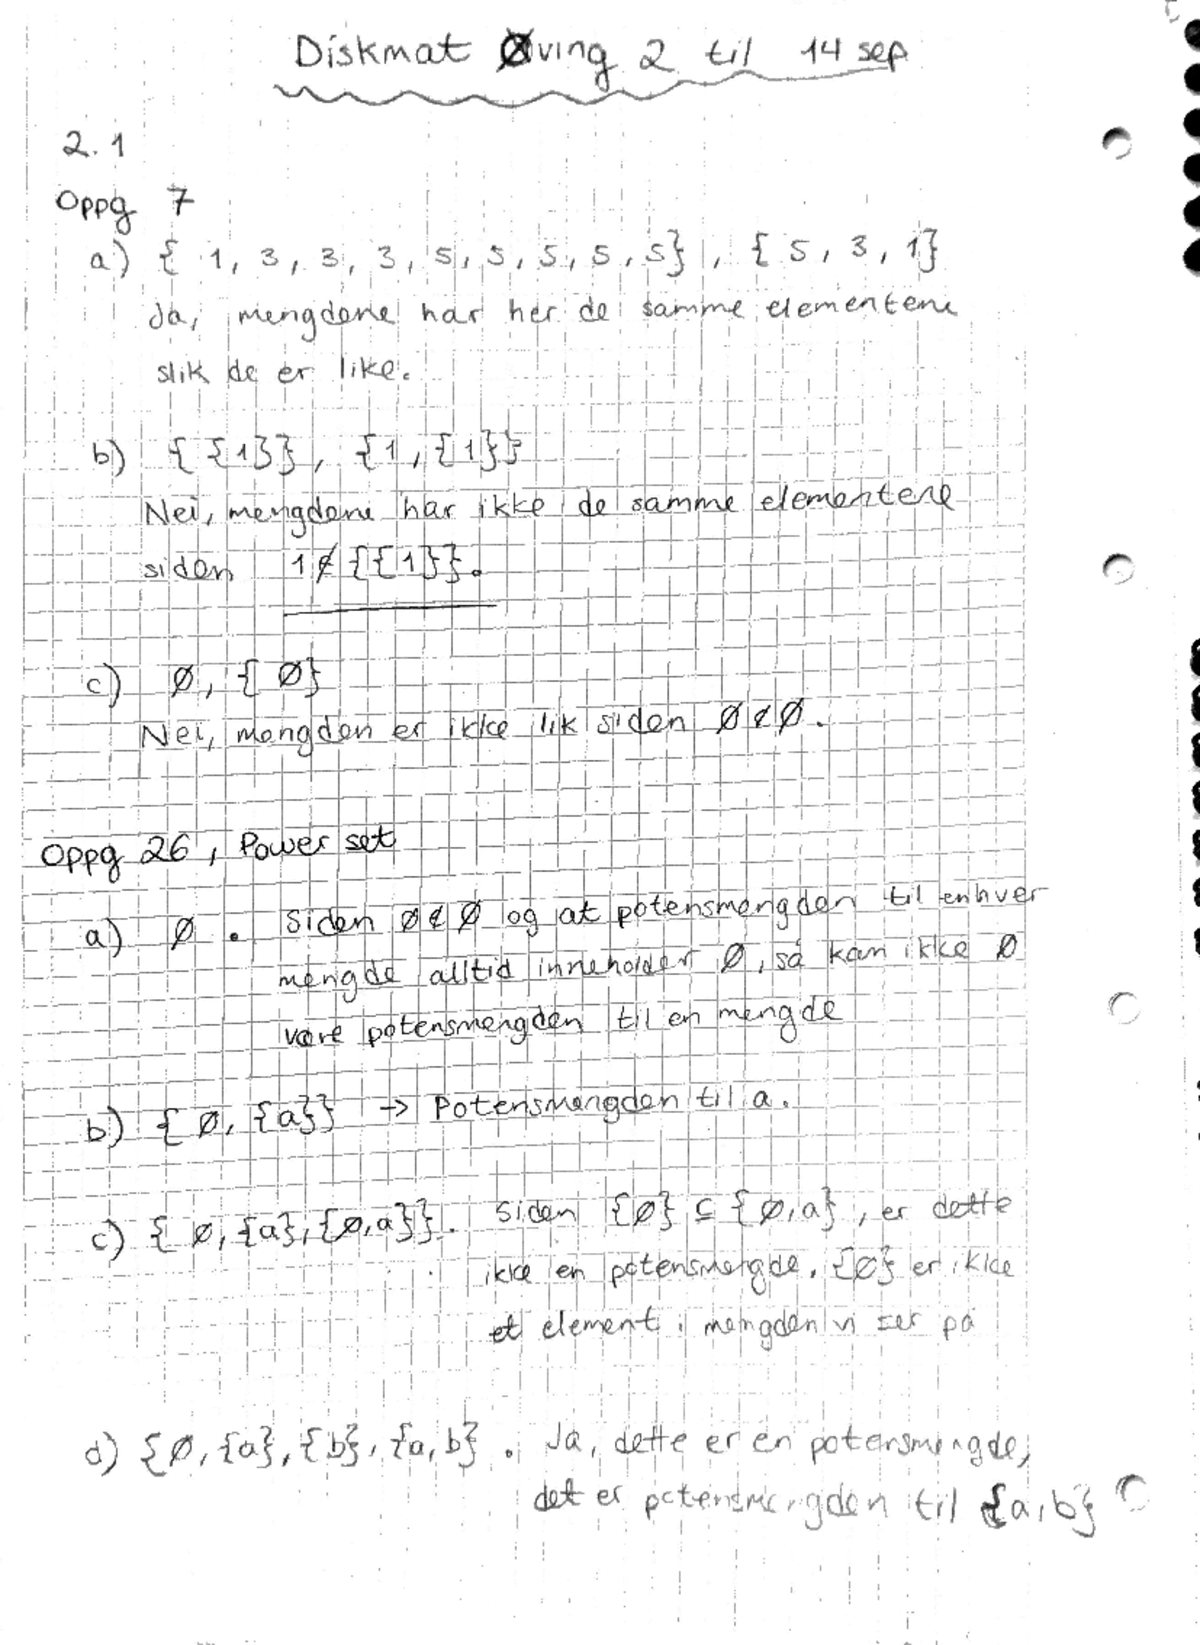 Diskmat Øving 2 til 14 sep
2.1
Oppg 7
a) { 1, 3, 3, 3, 5, 5, 5, 5, 5}, { 5, 3, 1}
Ja, mengdene har her de samme elementene
slik de er like.
b) { {1}}, {1, {1}}
Nei, mengdene har ikke de samme elementene
siden 1 ∉ {{1}}.
c) Ø, { Ø}
Nei, mengden er ikke lik siden Ø ∉ Ø.
Oppg 26, Power set
a) Ø. Siden Ø ∉ Ø og at potensmengden til enhver
mengde alltid inneholder Ø, så kan ikke Ø
være potensmengden til en mengde
b) { Ø, {a}} → Potensmengden til a.
c) { Ø, {a}, {Ø,a}}. Siden {Ø} ⊆ {Ø,a}, er dette
ikke en potensmengde. {Ø} er ikke
et element i mengden vi ser på
d) {Ø, {a}, {b}, {a,b}. Ja, dette er en potensmengde,
det er potensmengden til {a,b}